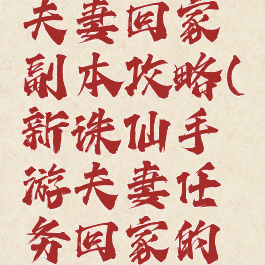 夫妻回家
副本攻略(
新诛仙手
游夫妻任
务回家的